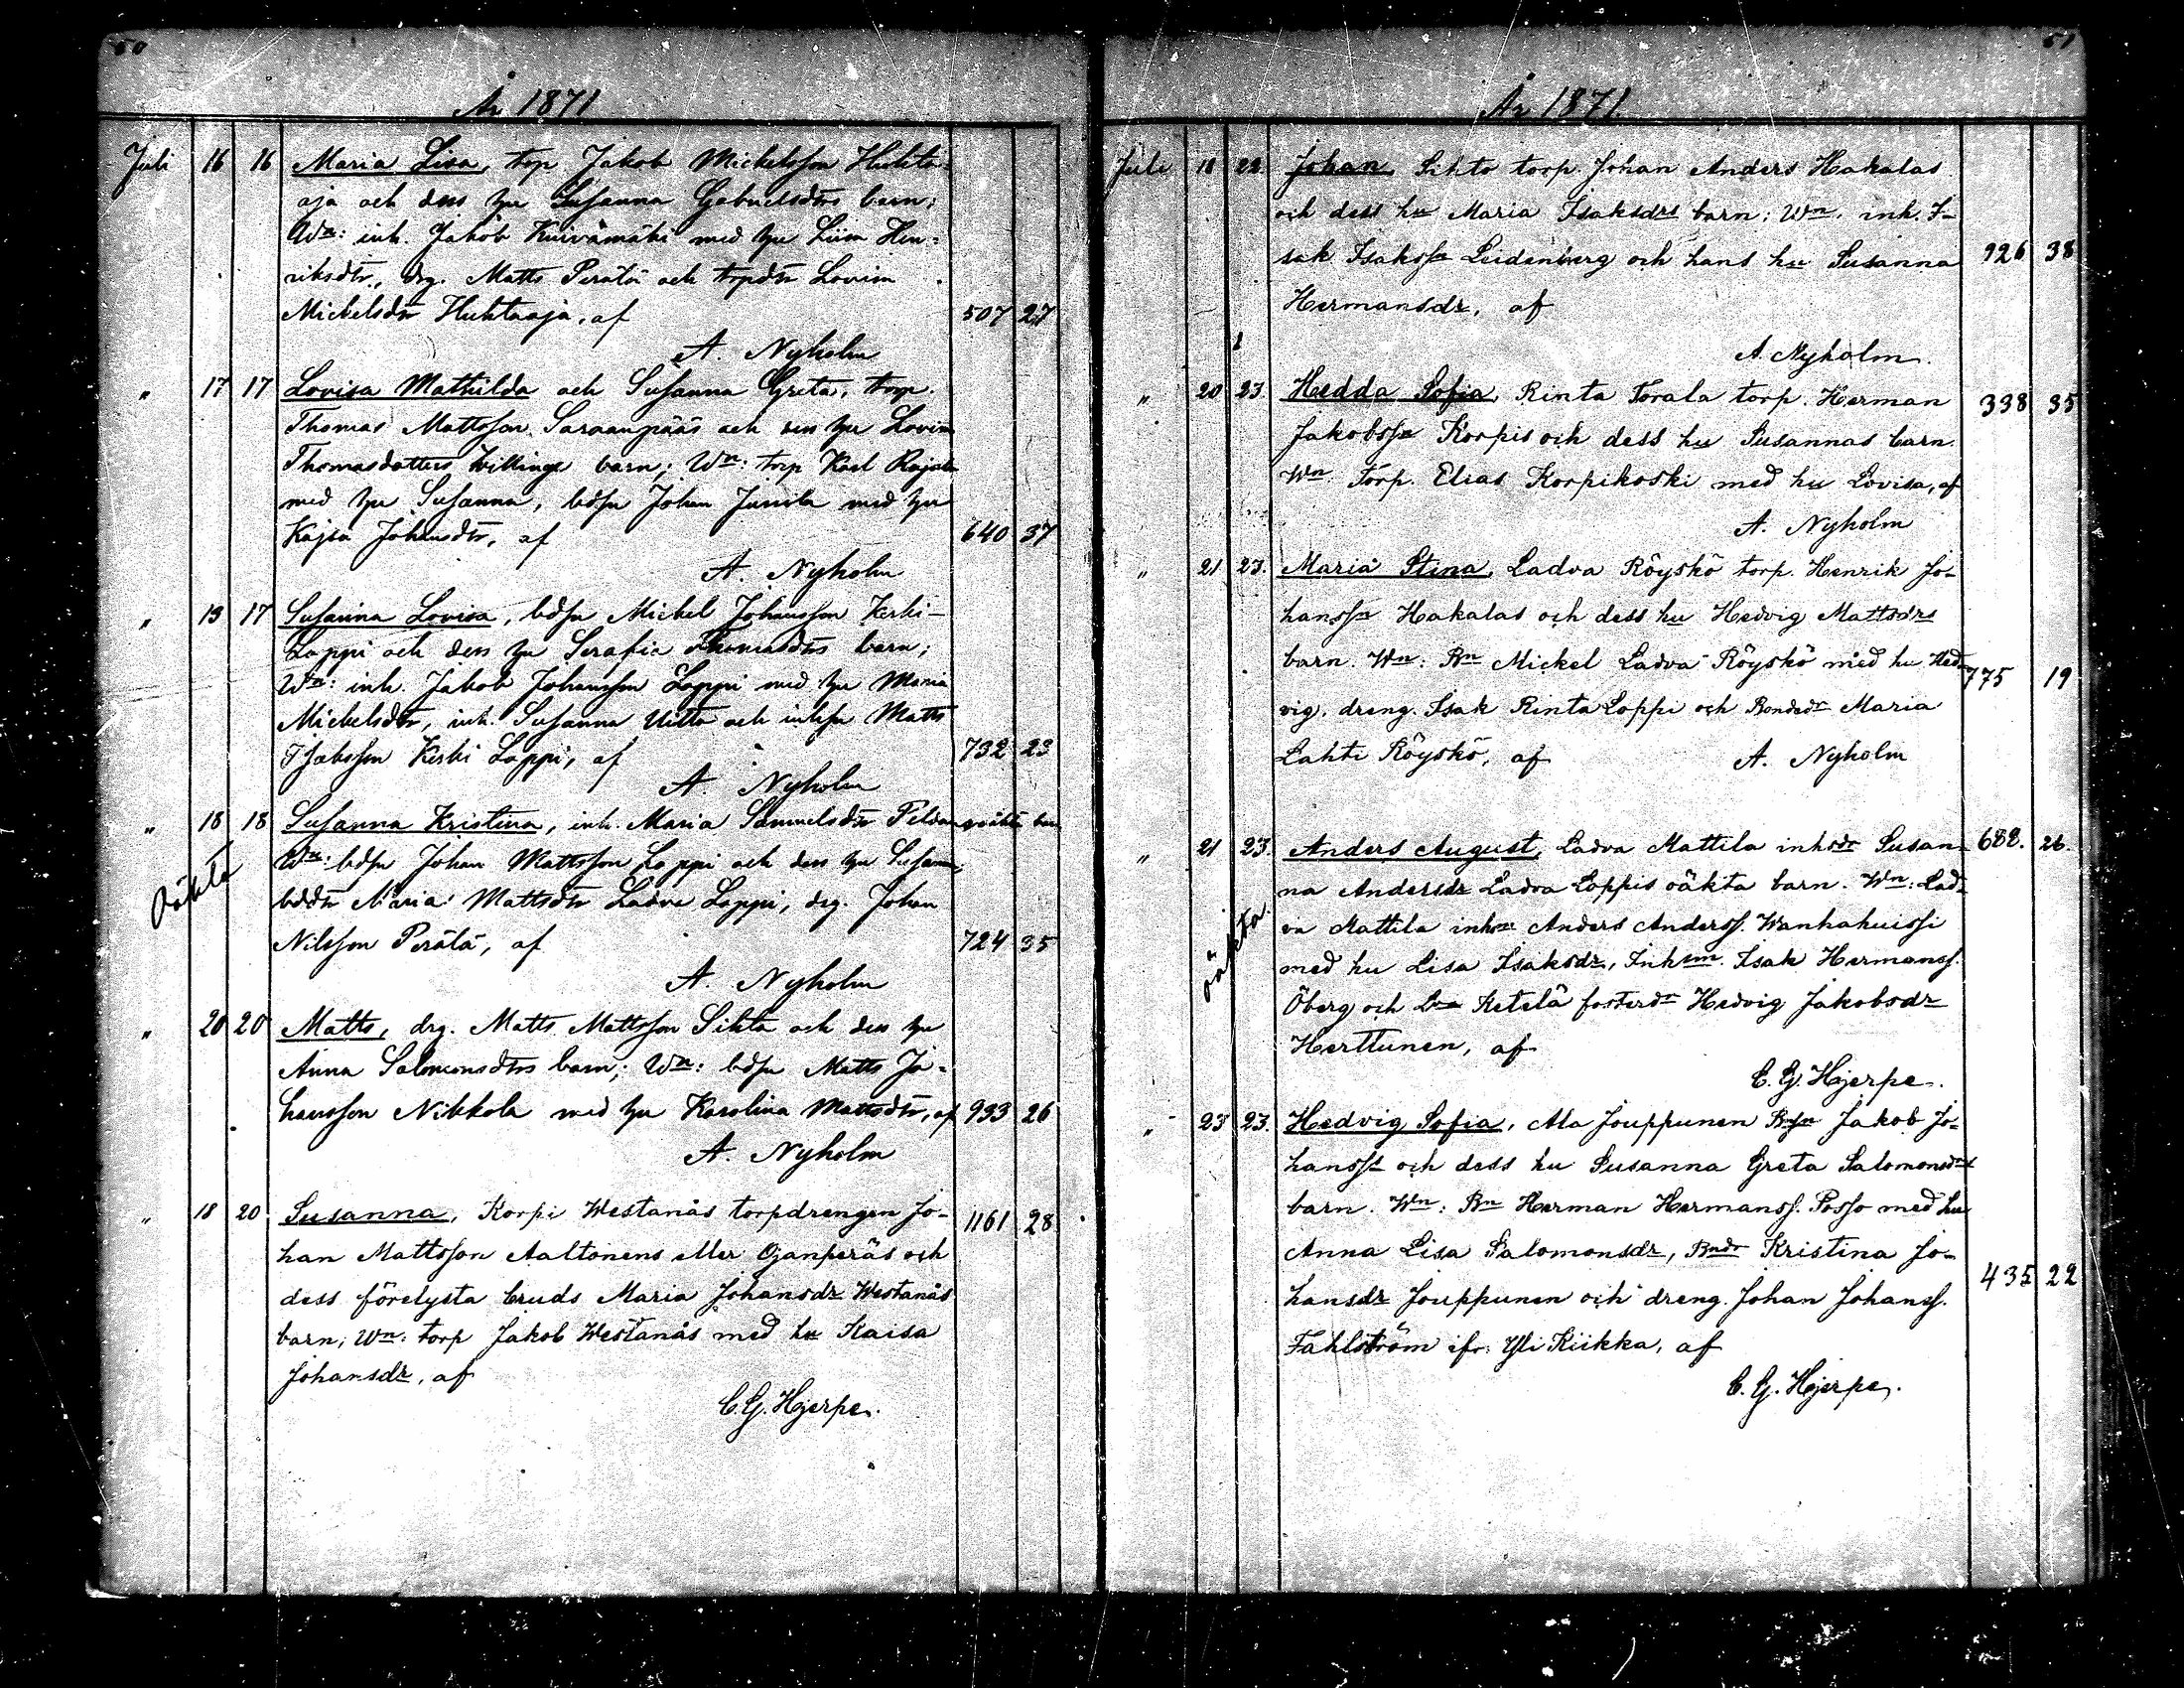 50
År 1871
Juli 16 16 Maria Lisa, torp Jakob Mickelsson Huhta-
oja och dess hu Susanna Gabrielsdtrs barn;
Wn: inh. Jakob Kuivamäki med hu Liisa Hen-
riksdtr, drg. Matts Perälä och torpdtr Lovisa
Mickelsdtr Huhtaoja, af 507 27
A. Nyholm
" 17 17 Lovisa Mathilda och Susanna Greta, torp.
Thomas Mattsson Saraanpääs och dess hu Lovisa
Thomasdotters tvillinge barn; Wn: torp Karl Rajala
med hu Susanna, bdsn Johan Jussila med hu
Kajsa Johansdtr, af 640 37
A. Nyholm
" 13 17 Susanna Lovisa, bdsn Mickel Johansson Keski-
Loppi och dess hu Serafia Thomasdtrs barn;
Wn: inh. Jakob Johansson Loppi med hu Maria
Mickelsdtr, inh. Susanna Uitto och inhsn Matts
Jakobsson Keski Loppi, af 732 23
A. Nyholm
" 18 18 Susanna Kristina, inh. Maria Samuelsdtr oäkta barn
oäkta
Wn: bdsn Johan Mattsson Loppi och dess hu Susanna,
bddtr Maria Mattsdtr Ladva Loppi, drg. Johan
Nilsson Perälä, af 724 35
A. Nyholm
" 20 20 Matts, drg. Matts Mattsson Sihto och dess hu
Anna Salomonsdtrs barn; Wn: bdsn Matts Jo-
hansson Nikkola med hu Karolina Mattsdtr, af 933 26
A. Nyholm
" 18 20 Susanna, Korpi Westanås torpdrengen Jo- 1161 28
han Mattsson Aaltonens eller Ojanperäs och
dess förelysta bruds Maria Johansdr Westanås
barn; Wn: torp Jakob Westanås med hu Kaisa
Johansdr, af
C. G. Hjerpe.
51
År 1871.
Juli 18 22. Johan, Sihto torp. Johan Anders Hakalas
och dess hu Maria Isaksdrs barn; Wn. inh. I-
sak Isakssn Leidenberg och hans hu Susanna 926 38
Hermansdr, af
A. Nyholm.
" 20 23. Hedda Sofia, Rinta Torala torp. Herman 338 35
Jakobssn Korpis och dess hu Susannas barn.
Wn. Torp. Elias Korpikoski med hu Lovisa, af
A. Nyholm
" 21 23. Maria Stina, Ladva Röyskö torp. Henrik Jo-
hanssn Hakalas och dess hu Hedvig Mattsdrs
barn. Wn: Bn Mickel Ladva Röyskö med hu Hed- 775 19
vig, dreng. Isak Rinta Loppi och Bondedr Maria
Lahti Röyskö, af A. Nyholm
" 21 23. Anders August, Ladva Mattila inhsdr Susan- 688. 26.
oäkta.
na Andersdr Ladva Loppis oäkta barn. Wn: Lad-
va Mattila inhsn Anders Anderss. Wanhahuissi
med hu Lisa Isaksdr, Inhsm. Isak Hermanss.
Öberg och Ketelä fosterdr Hedvig Jakobsdr
Herttunen, af
C. G. Hjerpe.
" 23 23. Hedvig Sofia, Ala Jouppunen Bsn Jakob Jo-
hanssn och dess hu Susanna Greta Salomonsdrs
barn. Wn: Bn Herman Hermanss. Posso med hu
Anna Lisa Salomonsdr, Bndr Kristina Jo-
hansdr Jouppunen och dreng. Johan Johanss. 435 22
Fahlström ifr. Yli Kiikka, af
C. G. Hjerpe.